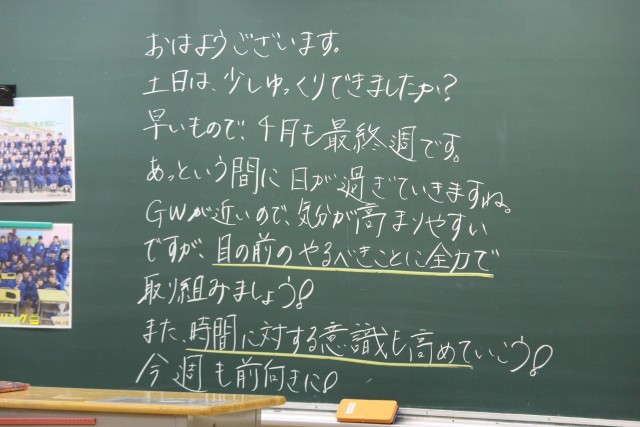 おはようございます。
土日は、少しゆっくりできましたか?
早いもので、4月も最終週です。
あっという間に日が過ぎていきますね。
GWが近いので、気分が高まりやすい
ですが、目の前のやるべきことに全力で
取り組みましょう!
また、時間に対する意識も高めていこう!
今週も前向きに!